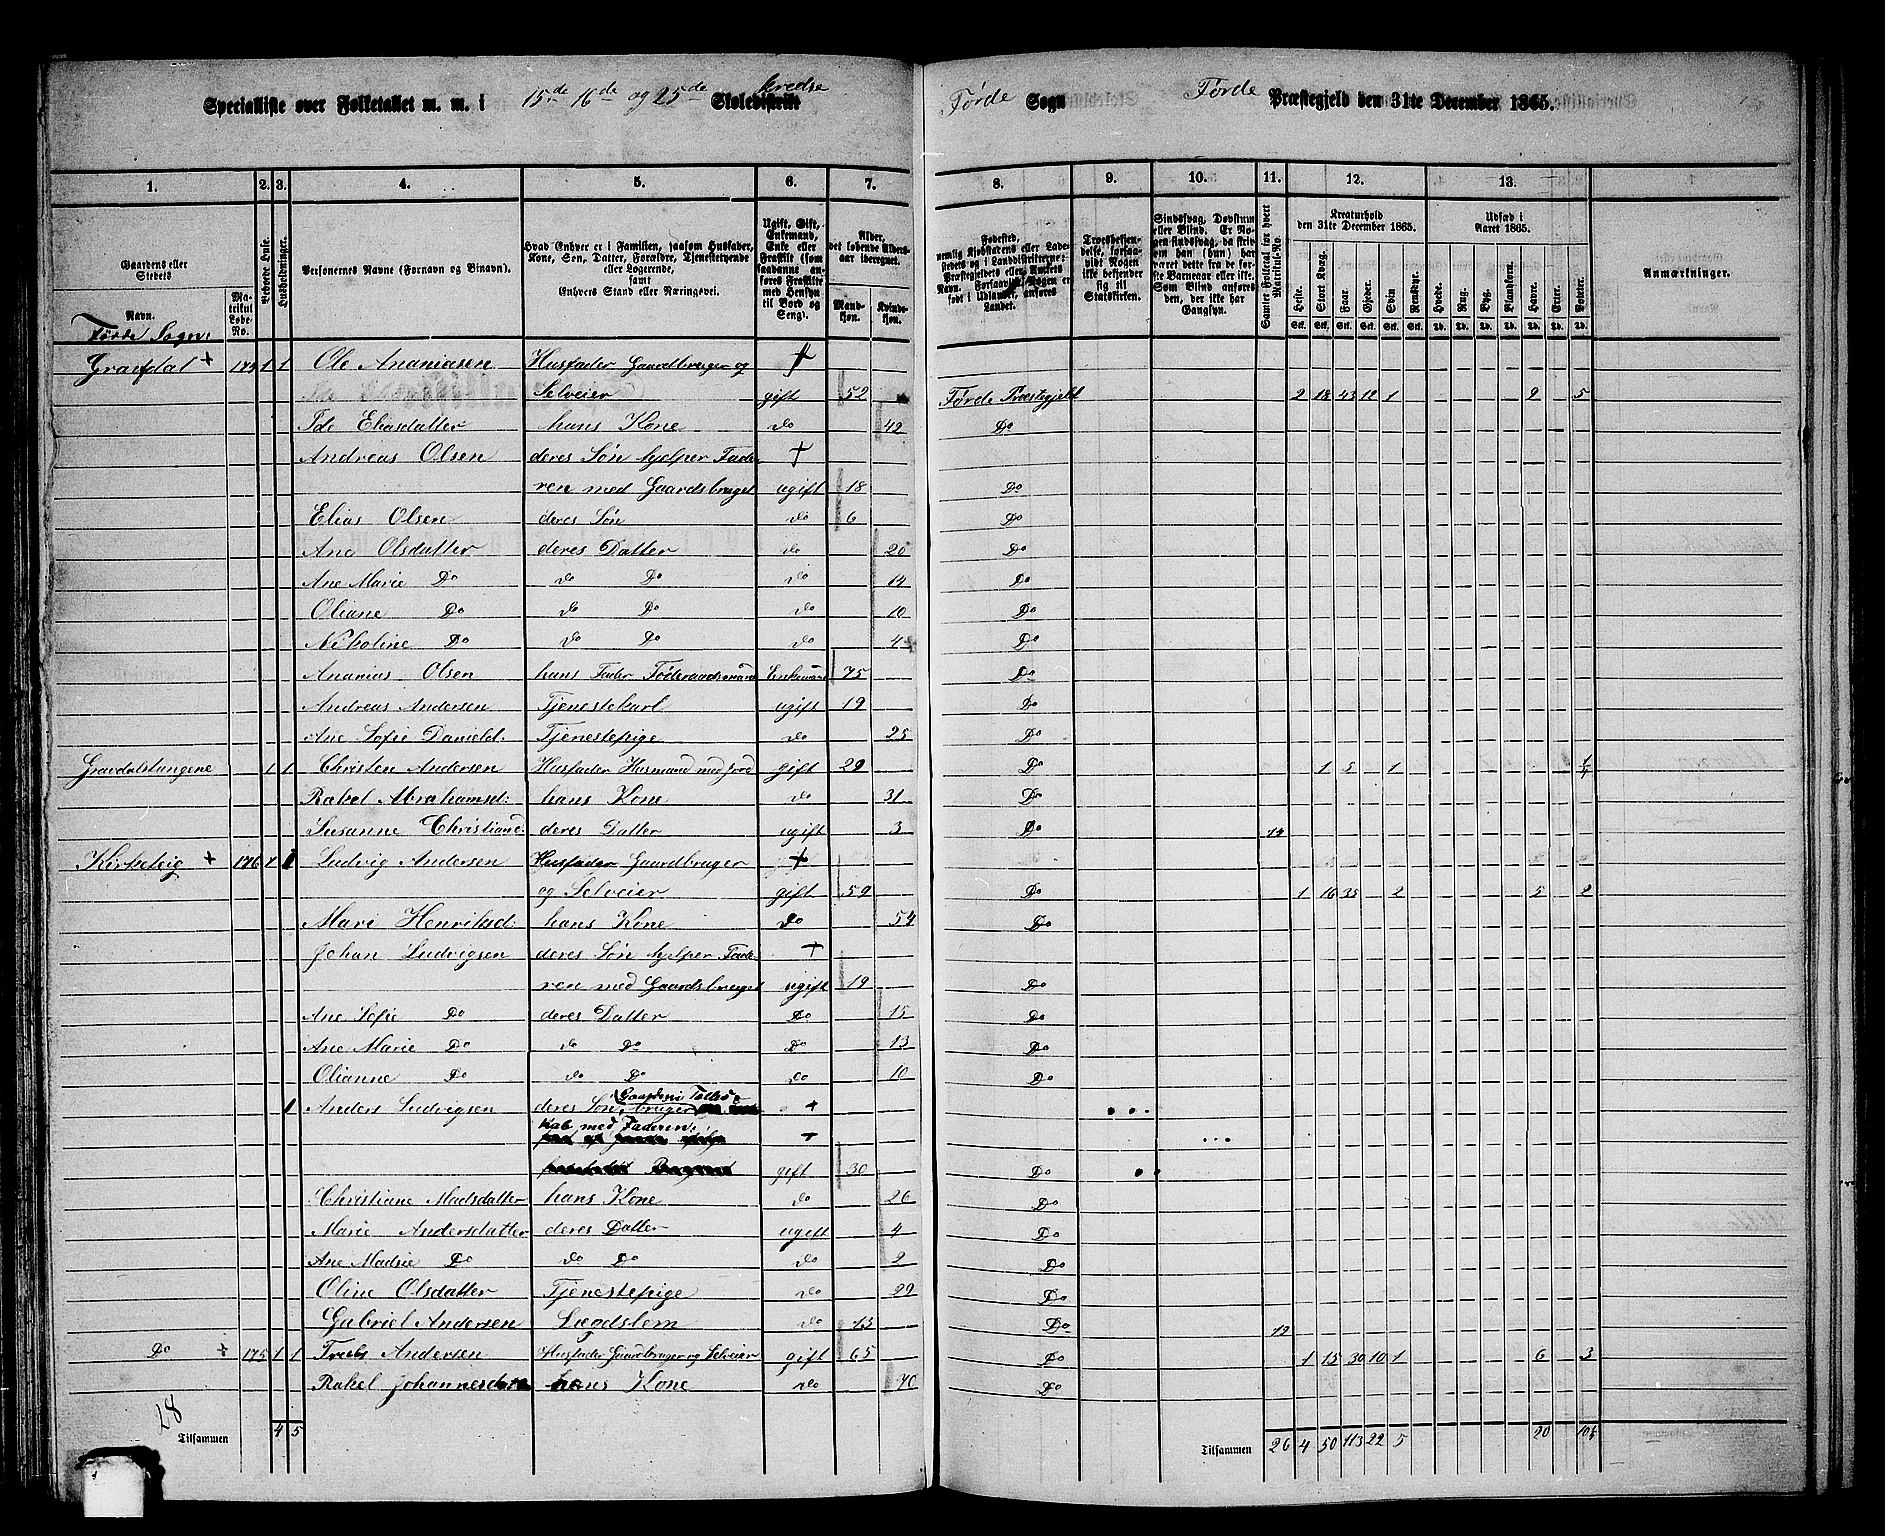 Specialliste over Folketallet m. m. i 15de 16de og 25de Skoledistrikt Kredse Førde Sogn Førde Præstegjeld den 31te December 1865.
1. 2. 3. 4. 5. 6. 7. 8. 9. 10. 11. 12. 13.
Gaardens eller Stedets Navn. Matrikul Løbe-No. Beboede Huse. Husholdninger. Personernes Navne (Fornavn og Binavn). Hvad Enhver er i Familien, saasom Husfader, Kone, Søn, Datter, Forældre, Tjenestetyende eller Logerende, samt Enhvers Stand eller Næringsvei. Ugift, Gift, Enkemand, Enke eller Fraskilt (som saadanne anføres Fraskilte med Hensyn til Bord og Seng). Alder, det løbende Aldersaar iberegnet. Mandkøn. Kvindekøn.
Fødested, nemlig Kjøbstadens eller Ladestedets og i Landdistrikterne Præstegjeldets eller Amtets Navn. Forsaavidt Nogen er født i Udlandet, anføres Landet. Troesbekjendelse, forsaavidt Nogen ikke bekjender sig til Statskirken. Sindssvag, Døvstum eller Blind. Er Nogen sindssvag, da skrives om han (hun) har været dette fra de første Barneaar eller ikke. Som Blind anføres den, der ikke har Gangsyn. Samlet Folketal for hvert Matrikul-No. Kreaturhold den 31te December 1865. Heste. Stort Kvæg. Faar. Gjeder. Svin. Rensdyr. Udsæd i Aaret 1865. Hvede. Rug. Byg. Blandkorn. Havre. Erter. Poteter. Anmærkninger.
Førde Sogn:
Gravdal + 1 1 Ole Ananiasen Husfader Gaardbruger og +
Selveier gift 52 Førde Præstegjeld 2 18 43 12 1 9 5
Ide Eliasdatter hans Kone do 42 Do
Andreas Olsen deres Søn hjelper Fade- +
ren med Gaardsbruget ugift 18 Do
Elias Olsen deres Søn do 6 Do
Ane Olsdatter deres Datter do 20 Do
Ane Marie Do do Do do 14 Do
Oliane Do do Do do 10 Do
Nikoline Do do Do do 4 Do
Ananias Olsen hans Fader Føderaadsmand Enkemand 75 Do
Andreas Andersen Tjenestekarl ugift 19 Do
Ane Sofie Danield: Tjenestepige do 25 Do
Gravdalstangene 1 1 Christen Andersen Husfader Husmand med Jord gift 29 Do 1 5 1 1/4
Rakel Abrahamsd: hans Kone do 31 Do
Susanne Christiand: deres Datter ugift 3 Do 14
Kirkeleig + 176 1 1 Ludvig Andersen Husfader Gaardbruger +
og Selveier gift 59 Do 1 16 35 2 5 2
Mari Henriksd: hans Kone do 54 Do
Johan Ludvigsen deres Søn hjelper Fade- +
ren med Gaardsbruget ugift 19 Do
Ane Sofie Do deres Datter Do 15 Do
Ane Marie Do do Do Do 13 Do
Olianne Do do Do do 10 Do
1 Anders Ludvigsen deres Søn, bruger Gaarden i Fælleds- +
kab med Faderen: +
gift 30 Do
Christiane Madsdatter hans Kone do 26 Do
Marie Andersdatter deres Datter ugift 4 Do
Ane Madsie Do do Do do 2 Do
Oline Olsdatter Tjenestepige do 22 Do
Gabriel Andersen Lægdslem do 13 Do 12
Do + 175 1 1 Andersen Husfader Gaardbruger og Selveier gift 65 Do 1 15 30 10 1 6 3
Rakel Johannesdatter hans Kone do 70 Do
28
Tilsammen 4 5 Tilsammen 26 4 50 113 22 5 20 10 1/4